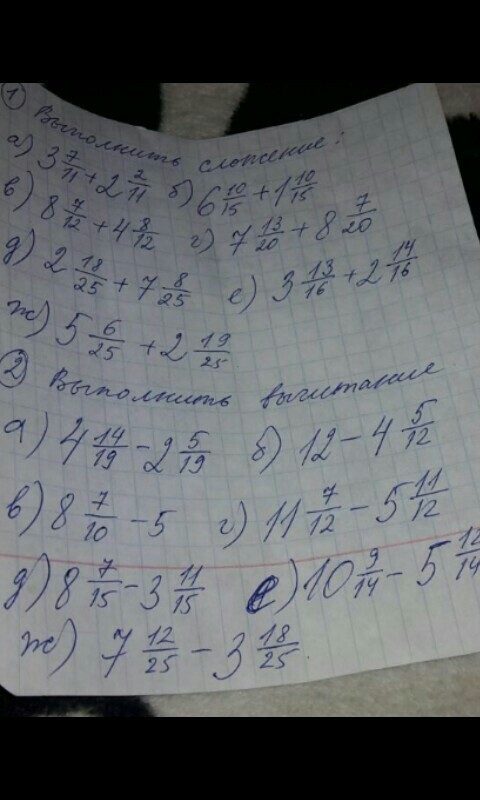 1 Выполнить сложение:
а) 3 7/11 + 2 2/11 б) 6 10/15 + 1 10/15
в) 8 7/12 + 4 8/12 г) 7 13/20 + 8 7/20
д) 2 18/25 + 7 8/25 е) 3 13/16 + 2 14/16
ж) 5 6/25 + 2 19/25
2 Выполнить вычитание
а) 4 14/19 - 2 5/19 б) 12 - 4 5/12
в) 8 7/10 - 5 г) 11 7/12 - 5 11/12
д) 8 7/15 - 3 11/15 е) 10 9/14 - 5 12/14
ж) 7 12/25 - 3 18/25.